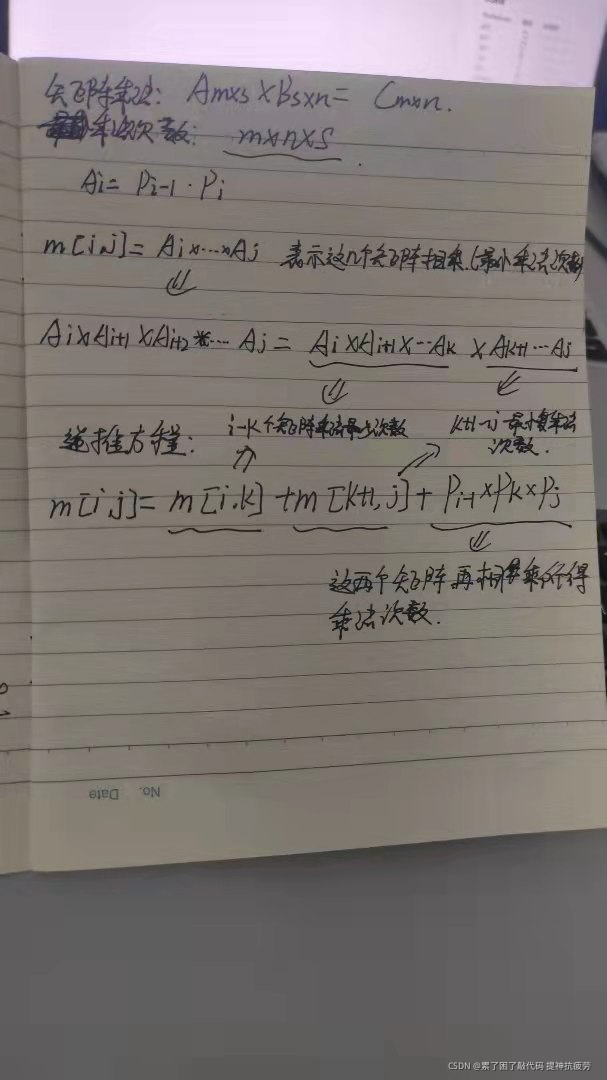 矩阵乘法: Am×s × Bs×n = Cm×n.
乘法次数: m×n×s
Ai = Pi-1 · Pi
m[i,j] = Ai×...×Aj 表示这几个矩阵相乘(最小乘法次数)
Ai×Ai+1×Ai+2*... Aj = Ai×Ai+1×...Ak × Ak+1...Aj
递推方程: i-k个矩阵乘法最少次数 k+1-j 最小乘法
次数.
m[i,j] = m[i,k] + m[k+1,j] + Pi-1×Pk×Pj
这两个矩阵再相乘所得
乘法次数.
No. Date
CSDN @累了困了敲代码 提神抗疲劳